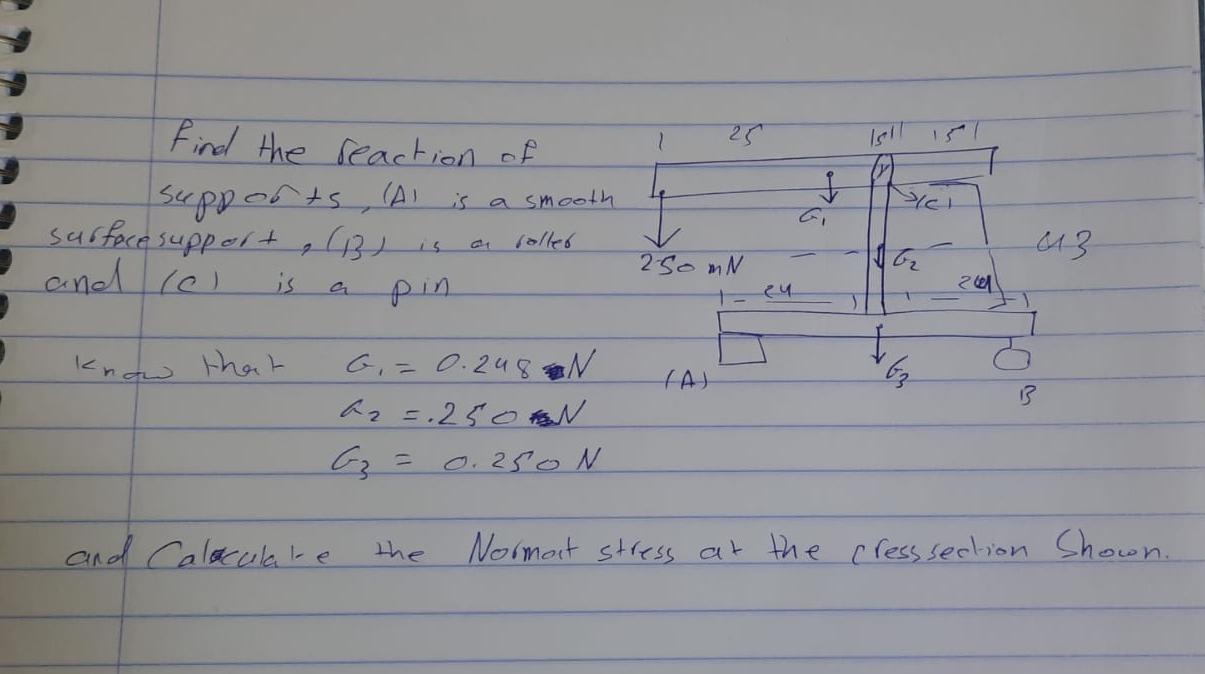 Find the reaction of
supports, (A) is a smooth
surface support, (B) is a roller
and (C) is a pin
Know that G₁ = 0.248 N
G₂ = .250 N
G₃ = 0.250 N
and Calculate the Normal stress at the cross section Shown.
25
15
G₁
(C)
250 mN
G₂
43
24
(A)
G₃
B